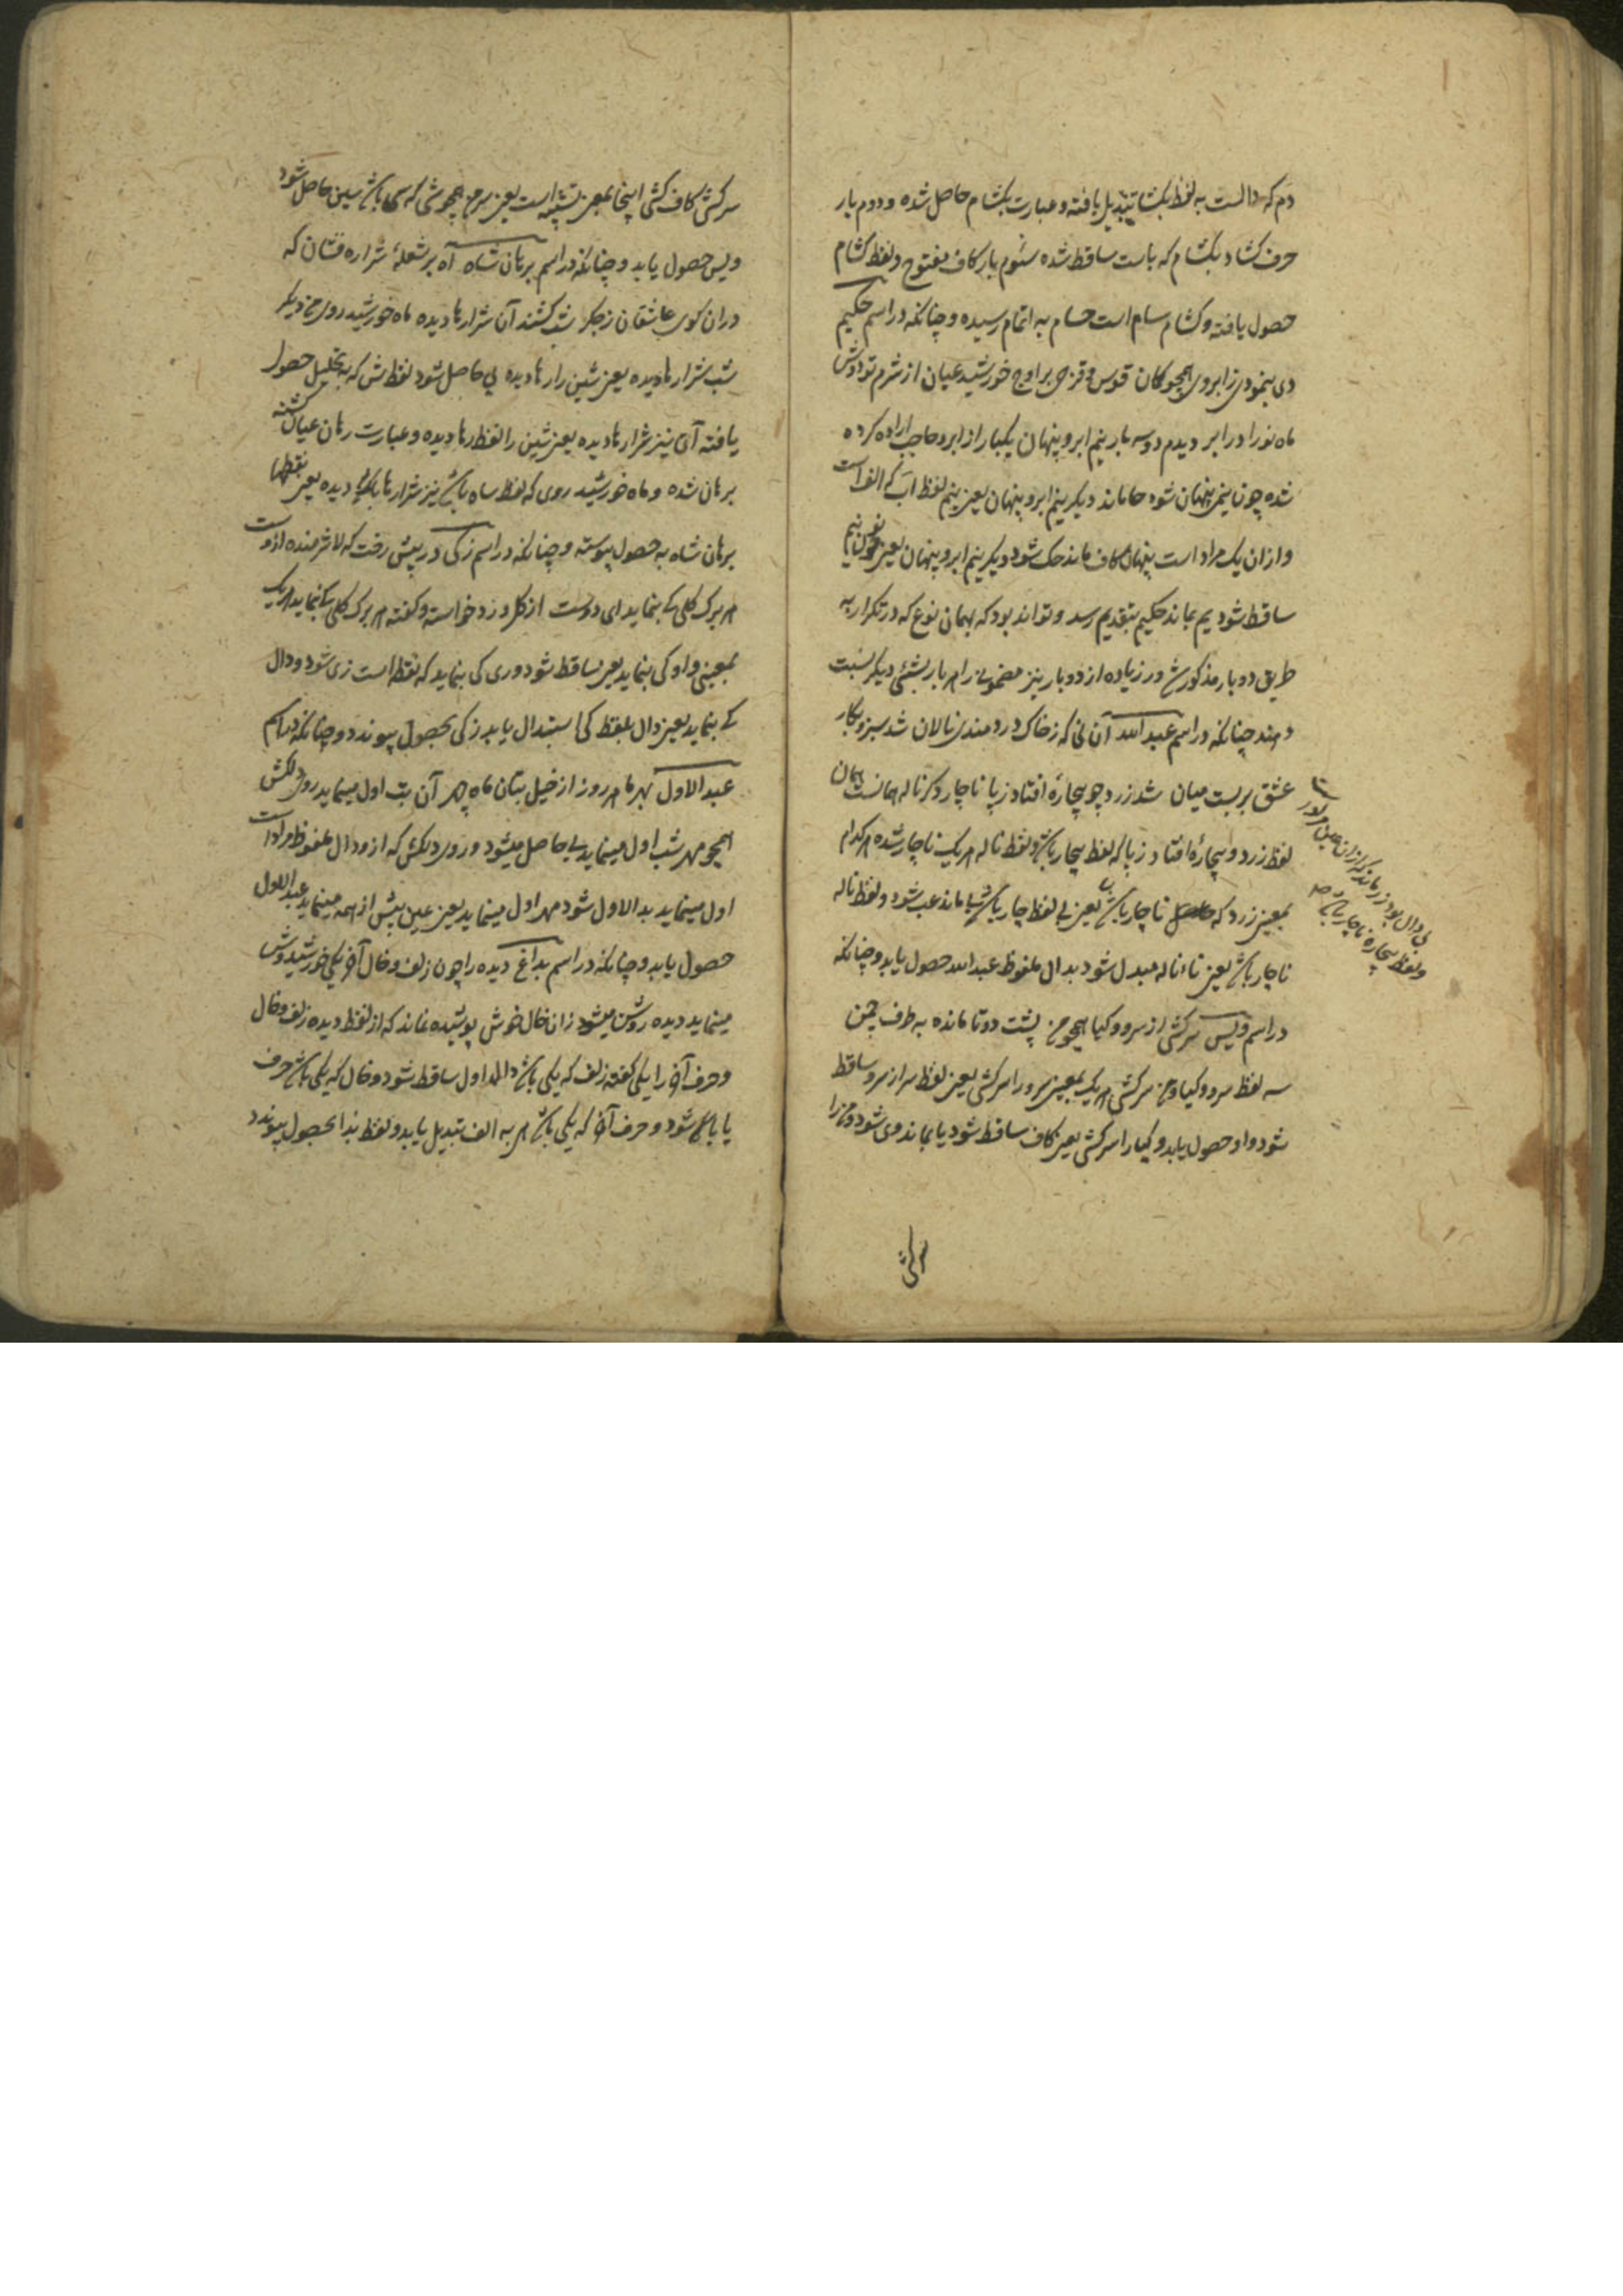 دم که دالست به لفظ بکشا تبدیل یافته و عبارت بکشام حاصل شده و دوم بار
حرف کشاد بکشام که باست ساقط شده سئوم بار کاف مفتوح و لفظ کشام
حصول یافته و کشام سام است حسام به اتمام رسیده و چنانکه در اسم حکیم
دی بنمودی ز ابروی همچو کمان قوس و قزحی بر اوج خورشید عیان از شرم تو دوش
ماه نو را در ابر دیدم دو سه بار نیم ابرو پنهان یکبار از ابرو حاجب اراده کرده
شده چون نیمی پنهان شود حا ماند دیگر نیم ابرو پنهان یعنی نیم لفظ اب که الف است
و ازان یک مراد است پنهان کاف ماند حک شود دیگر نیم ابرو پنهان یعنی
ساقط شود یم بماند حکیم بتقدیم رسد و تواند بود که بهمان نوع که در تکرار به
طریق دو بار مذکور شد در زیاده از دو بار نیز مضمونی را هر بار بشئی دیگر نسبت
دهند چنانکه در اسم عبد الله آن نی که ز خاک دردمندی نالان شد سبز و بکار
عشق بر بست میان شد زرد چو بیچارهٔ افتاد ز پا ناچار و کر ناله همانست همان
لفظ زرد و بیچارهٔ افتاد ز پا که لفظ بیچار باشد و لفظ ناله هر یک ناچار شده هر کدام
بمعنی زرد که ناچار باشد یعنی بی لفظ چار باشد با ماند عب شود و لفظ ناله
ناچار باشد یعنی ناء ناله مبدل شود بدال ملفوظ عبد الله حصول یابد و چنانکه
در اسم ویس سرکشی از سرو و کیا همچو من پشت دوتا مانده به طرف چمن
سه لفظ سرو و کیا و من سرکشی هر یک بمعنی سرو را سرکشی یعنی لفظ سر از سرو ساقط
شود واو حصول یابد و کیا را سرکشی یعنی کاف ساقط شود یا بماند وی شود و من را
بی دال بود زر ماند که ازان عین مراد است
و لفظ بیچاره ناچار باشد
سرکشی
سرکش کاف کشی اینجا بمعنی تشبیه است یعنی سر من همچو شی که سی باشد سین حاصل شود
ویس حصول یابد و چنانکه در اسم برهان شاه آه بر شعلهٔ شراره فشان که
دران کوی عاشقان ز جکر شب کشند آن شرارها دیده ماه خورشید روی من دیگر
شب شرارها دیده یعنی شین را رها دیده بی حاصل شود لفظ ش که به تحلیل حصول
یافته آن نیز شرارها دیده یعنی شین را لفظ رها دیده و عبارت رهان عیان گشته
برهان شده و ماه خورشید روی که لفظ ساه باشد نیز شرارها دیده یعنی نقطها
برهان شاه به حصول پیوسته و چنانکه در اسم زکی در پیش رخت که لا شرمنده ازوست
هر برک کلی کی بنماید ای دوست از کل ورد خواسته و کفته هر برک کلی کی بنماید هر یک
بمعنیی واو کی بنماید یعنی ساقط شود و ری کی بنماید که نقطه است زی شود و دال
کی بنماید یعنی دال بلفظ کی استبدال یابد زکی بحصول پیوندد و چنانکه در اسم
عبد الاول بهر ما هر روز از خیل بتان ماه چهر آن بت اول مینماید روی دلکش
همچو مهر شب اول مینماید بی حاصل میشود و روی دلکش که ازو دال ملفوظ مراد است
اول مینماید بد الاول شود مهر اول مینماید یعنی عین پیش از همه مینماید عبد الاول
حصول یابد و چنانکه در اسم بداغ دیده را چون زلف و خال آخر یکی خورشید وش
مینماید دیده روشن میشود زان خال خوش پوشیده نماند که از لفظ دیده زلف و خال
و حرف آخر را یکی کفته زلف که یکی باشد دال اول ساقط شود و خال که یکی باشد حرف
یا با شود و حرف آخر که یکی باشد هی به الف تبدیل یابد و لفظ بدا بحصول پیوندد